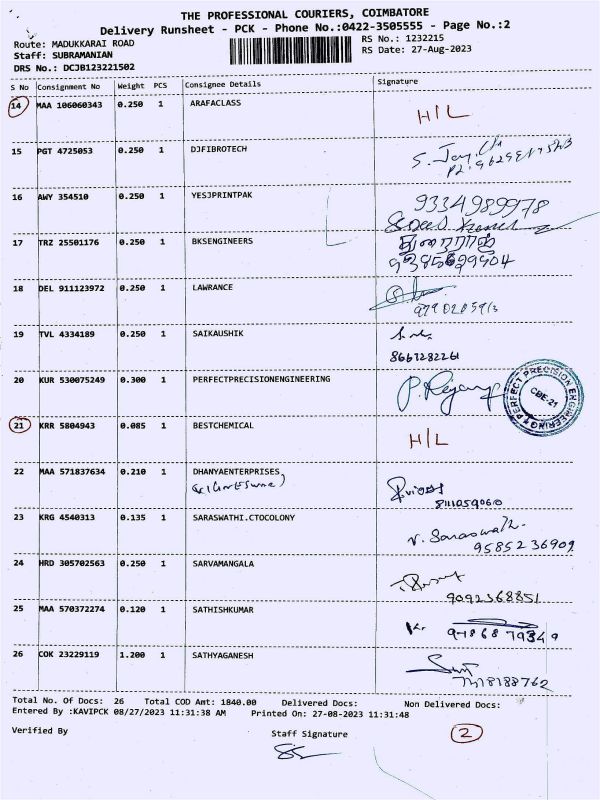 THE PROFESSIONAL COURIERS, COIMBATORE
Delivery Runsheet - PCK - Phone No.:0422-3505555 - Page No.:2
Route: MADUKKARAI ROAD
RS No.: 1232215
Staff: SUBRAMANIAN
RS Date: 27-Aug-2023
DRS No.: DCJB123221502
S No Consignment No Weight PCS Consignee Details Signature
14 MAA 106060343 0.250 1 ARAFACLASS H/L
15 PGT 4725053 0.250 1 DJFIBROTECH
16 AWY 354510 0.250 1 YESJPRINTPAK 9334989978
17 TRZ 25501176 0.250 1 BKSENGINEERS
18 DEL 911123972 0.250 1 LAWRANCE
19 TVL 4334189 0.250 1 SAIKAUSHIK
8667282261
20 KUR 530075249 0.300 1 PERFECTPRECISIONENGINEERING
PERFECT PRECISION ENGINEERING
CBE-21
21 KRR 5804943 0.085 1 BESTCHEMICAL H/L
22 MAA 571837634 0.210 1 DHANYAENTERPRISES
8111059060
23 KRG 4540313 0.135 1 SARASWATHI.CTOCOLONY V. Saraswath
9585236909
24 HRD 305702563 0.250 1 SARVAMANGALA
9092368851
25 MAA 570372274 0.120 1 SATHISHKUMAR
26 COK 23229119 1.200 1 SATHYAGANESH
Total No. Of Docs: 26 Total COD Amt: 1840.00 Delivered Docs: Non Delivered Docs:
Entered By :KAVIPCK 08/27/2023 11:31:38 AM Printed On: 27-08-2023 11:31:48
Verified By Staff Signature 2